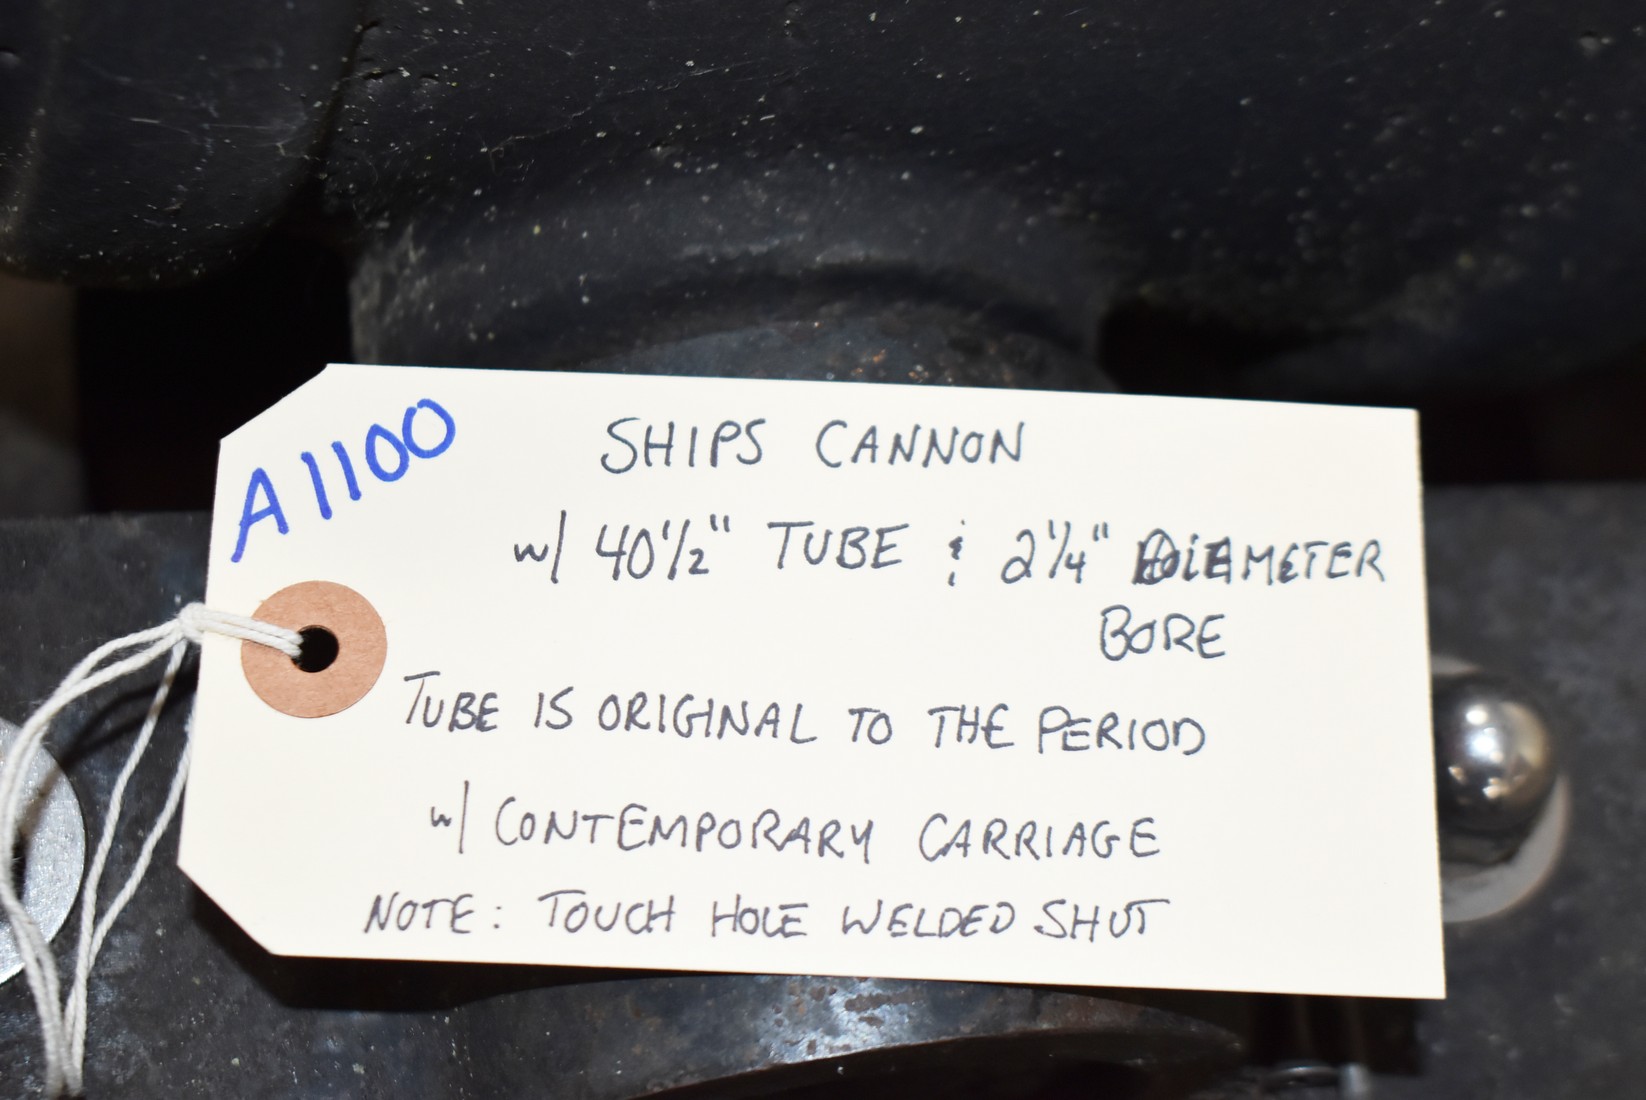 A1100
SHIPS CANNON
w/ 40 1/2" TUBE & 2 1/4" DIAMETER
BORE
TUBE IS ORIGINAL TO THE PERIOD
w/ CONTEMPORARY CARRIAGE
NOTE: TOUCH HOLE WELDED SHUT